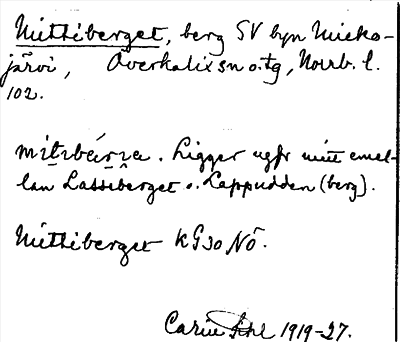 Mittiberget, berg SV byn Mieko-
järvi, Överkalix sn o. tg, Norrb. l.
102.
mìtıbǽrıa. Ligger ugfr mitt emel-
lan Lassiberget o. Lappudden (berg).
Mittiberget KG 30 NÖ.
Carin 1919-27.